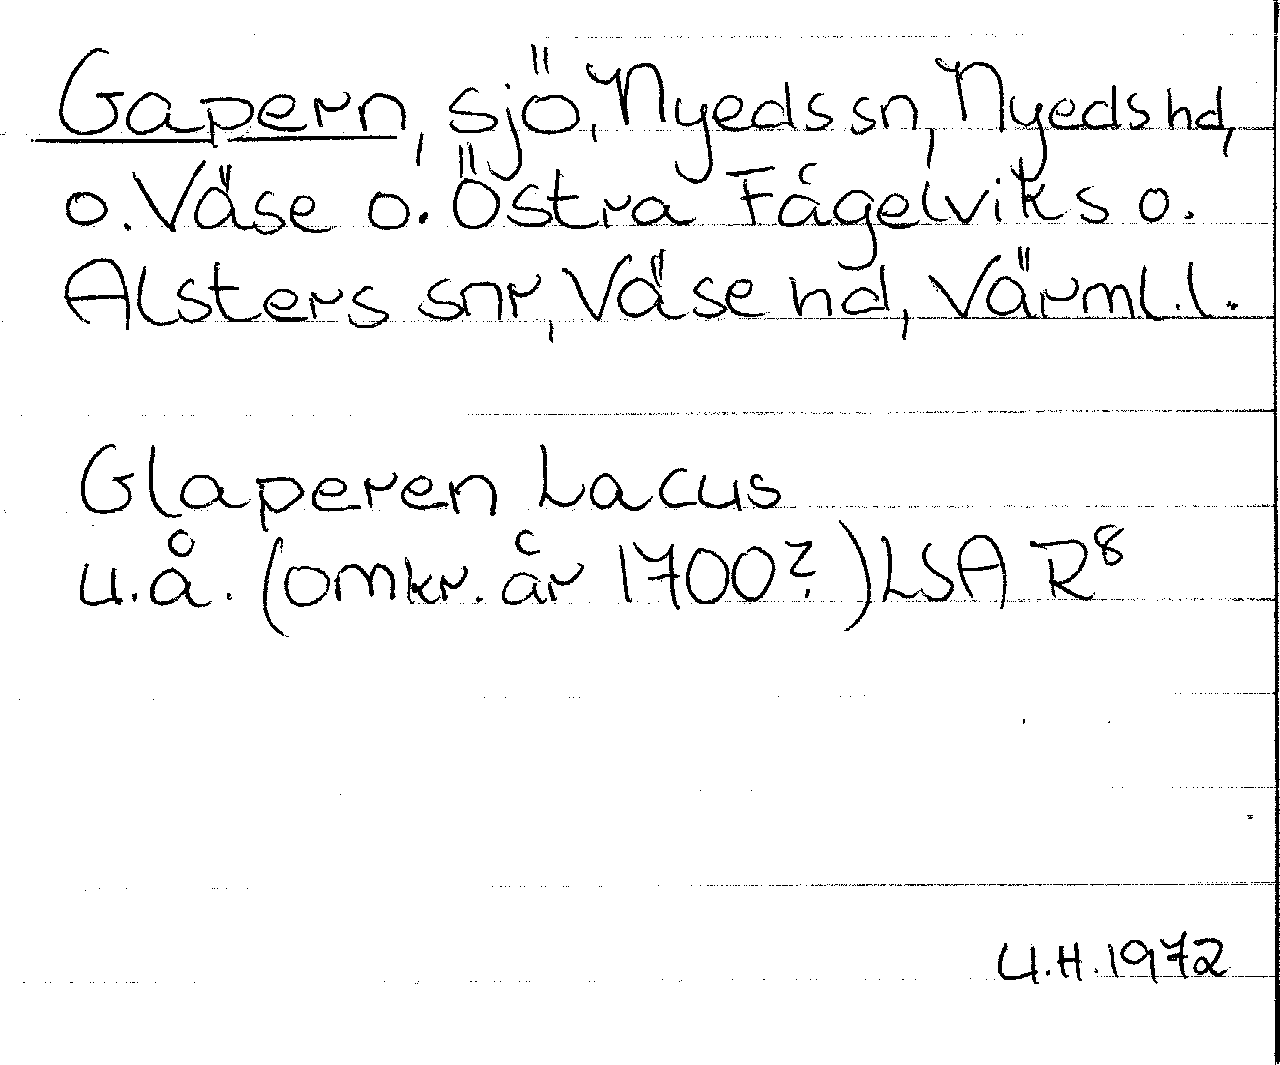 Gapern, sjö, Nyeds sn, Nyeds hd,
o. Väse o. Östra Fågelviks o.
Alsters snr, Väse hd, Värml. l.
Glaperen Lacus
u.å. (omkr. år 1700?) LSA R8
U.H. 1972